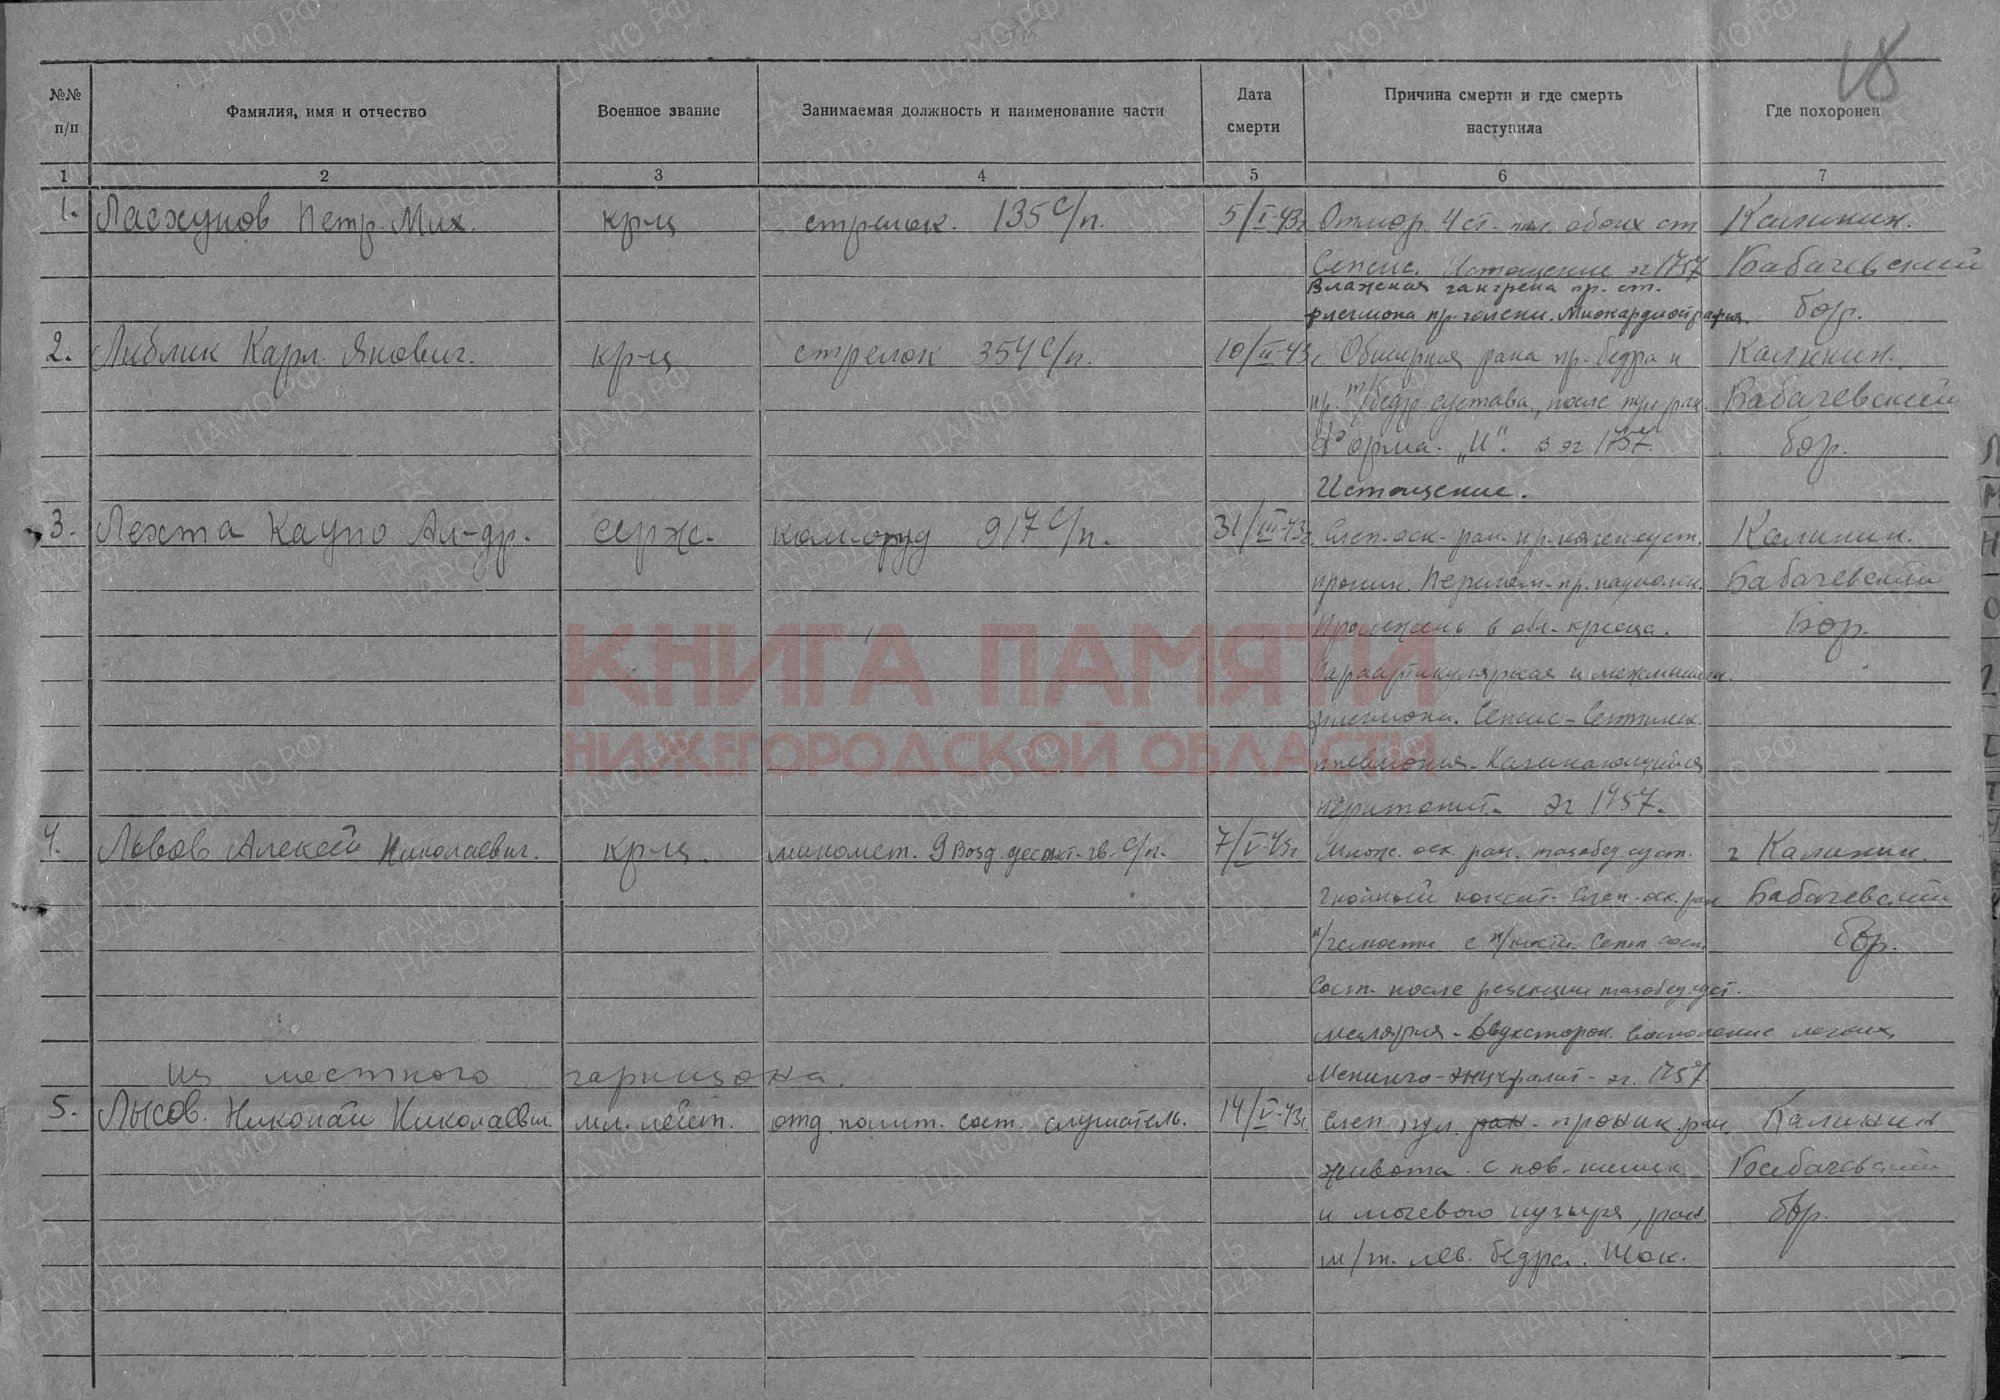 18
№№ п/п
Фамилия, имя и отчество
Военное звание
Занимаемая должность и наименование части
Дата смерти
Причина смерти и где смерть наступила
Где похоронен
1 2 3 4 5 6 7
1. Ласхунов Петр Мих. кр-ц стрелок. 135 с/п. 5/I-43г. Отмор. 4 ст. обоих ст Калинин.
Сепсис. Истощение эг 1757 Бабачевский
Влажная гангрена пр. ст.
флегмона пр. голени. Миокардиострафия. бор.
2. Либлик Карл Янович. кр-ц стрелок 354 с/п. 10/II-43г. Обширная рана пр. бедра и Калинин.
пр. т/бедр сустава, после пул. ран. Бабачевский
Форма "И". в эг 1757. бор.
Истощение.
3. Лехта Каупо Ал-др. серж. ком-оруд 917 с/п. 31/III-43г. Слеп. оск. ран. пр. колен. суст. Калинин.
проник. Перелом пр. надколен. Бабачевский
Пролежень в обл. крестца. Бор.
Параартикулярная и межмышечн.
флегмона. Сепсис - Септическ.
пневмония.
перитонит. эг 1757.
4. Львов Алексей Николаевич. кр-ц. миномет. 9 возд. десант. гв. с/п. 7/V-43г Множ. оск. ран. тазобед. суст. г Калинин.
Гнойный коксит. Слеп. оск. ран Бабачевский
н/челюсти с Септ. сост. бор.
Сост. после резекции тазобед. суст.
малярия - Двухсторон. воспаление легких,
из местного гарнизона. Менинго-энцефалит - эг. 1757
5. Лысов Николай Николаевич. мл. лейт. отд. полит. сост. слушатель. 14/V-43г Слеп. пул. ран. проник. ран. Калинин
живота с пов. кишек. Бабачевский
и мочевого пузыря, ран. бор.
м/т. лев. бедра. Шок.
КНИГА ПАМЯТИ
НИЖЕГОРОДСКОЙ ОБЛАСТИ
ЦА МО РФ
ПАМЯТЬ НАРОДА